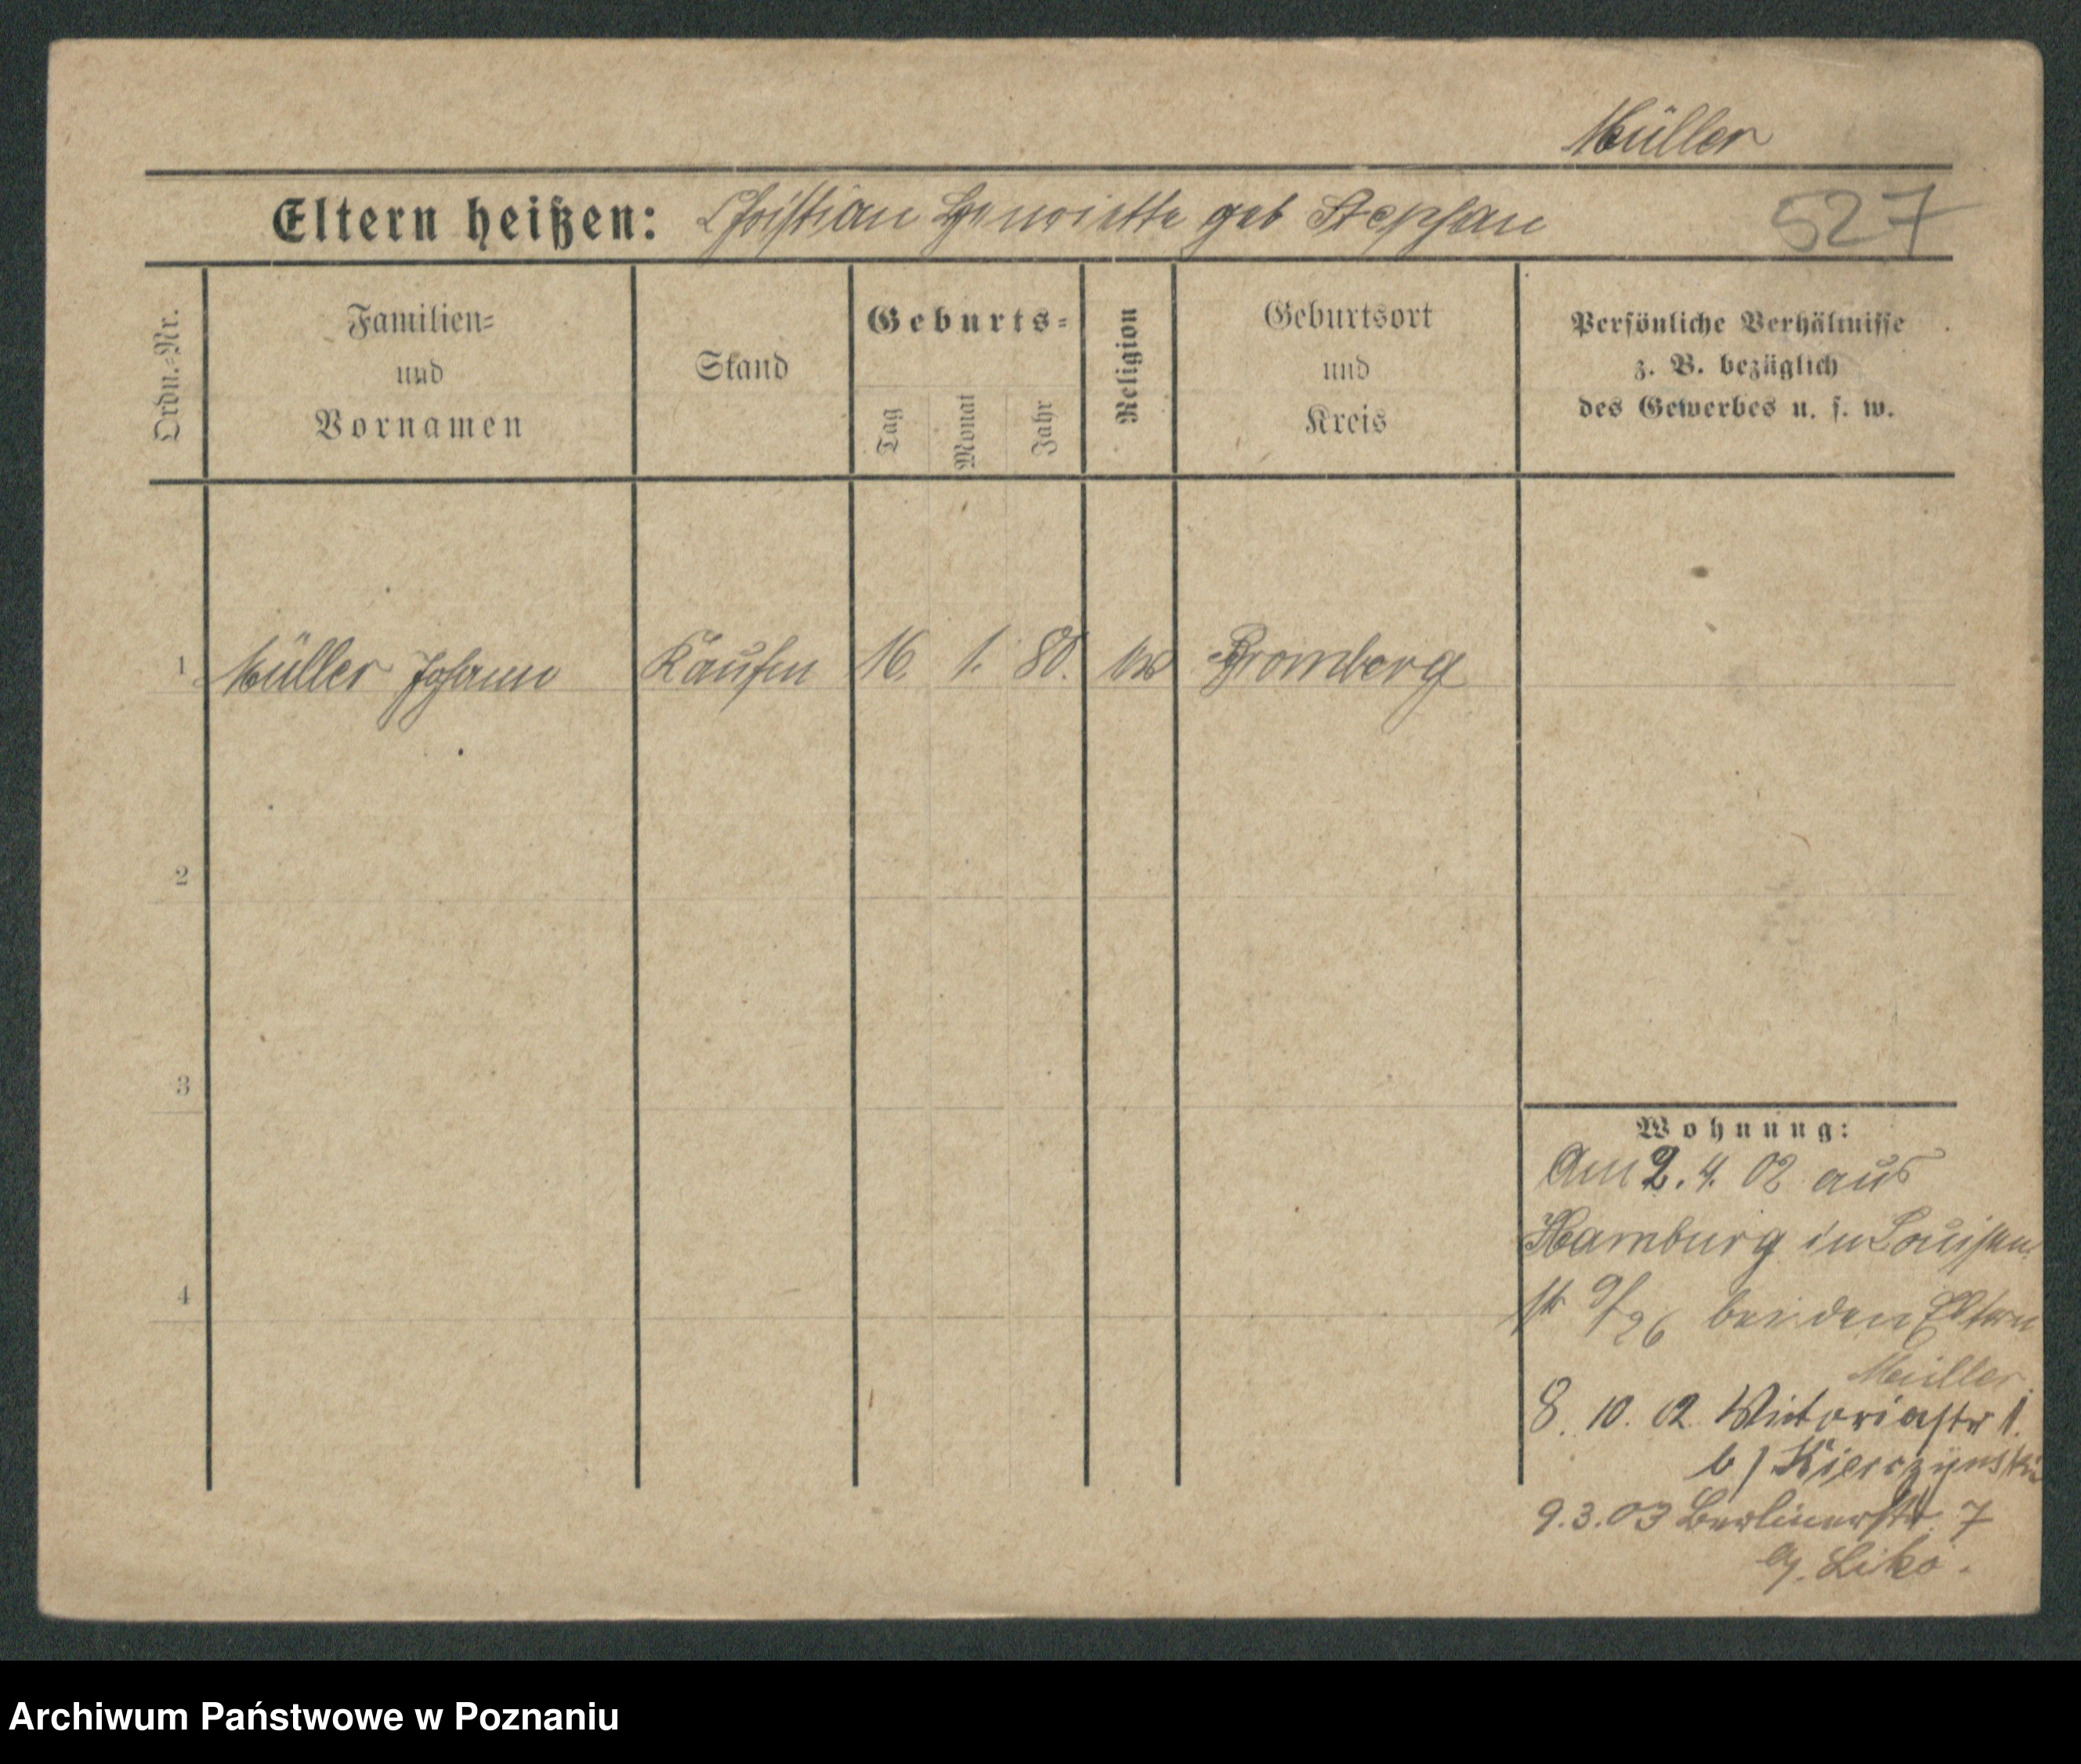 Müller
Eltern heißen: Christian Henriette geb Stephan 527
Ordn.-Nr.
Familien-
und
Vornamen
Stand
Geburts-
Tag
Monat
Jahr
Religion
Geburtsort
und
Kreis
Persönliche Verhältnisse
z. B. bezüglich
des Gewerbes u. s. w.
1 Müller Johann Kaufm 16. 1. 80. ev Bromberg
2
3
4
Wohnung:
Am 2. 4. 02 aus
Hamburg in Louisen
str 9/26 bei den Eltern
Müller.
8. 10. 02 Victoriastr 1.
b/
9. 3. 03 Berlinerstr. 7
Archiwum Państwowe w Poznaniu